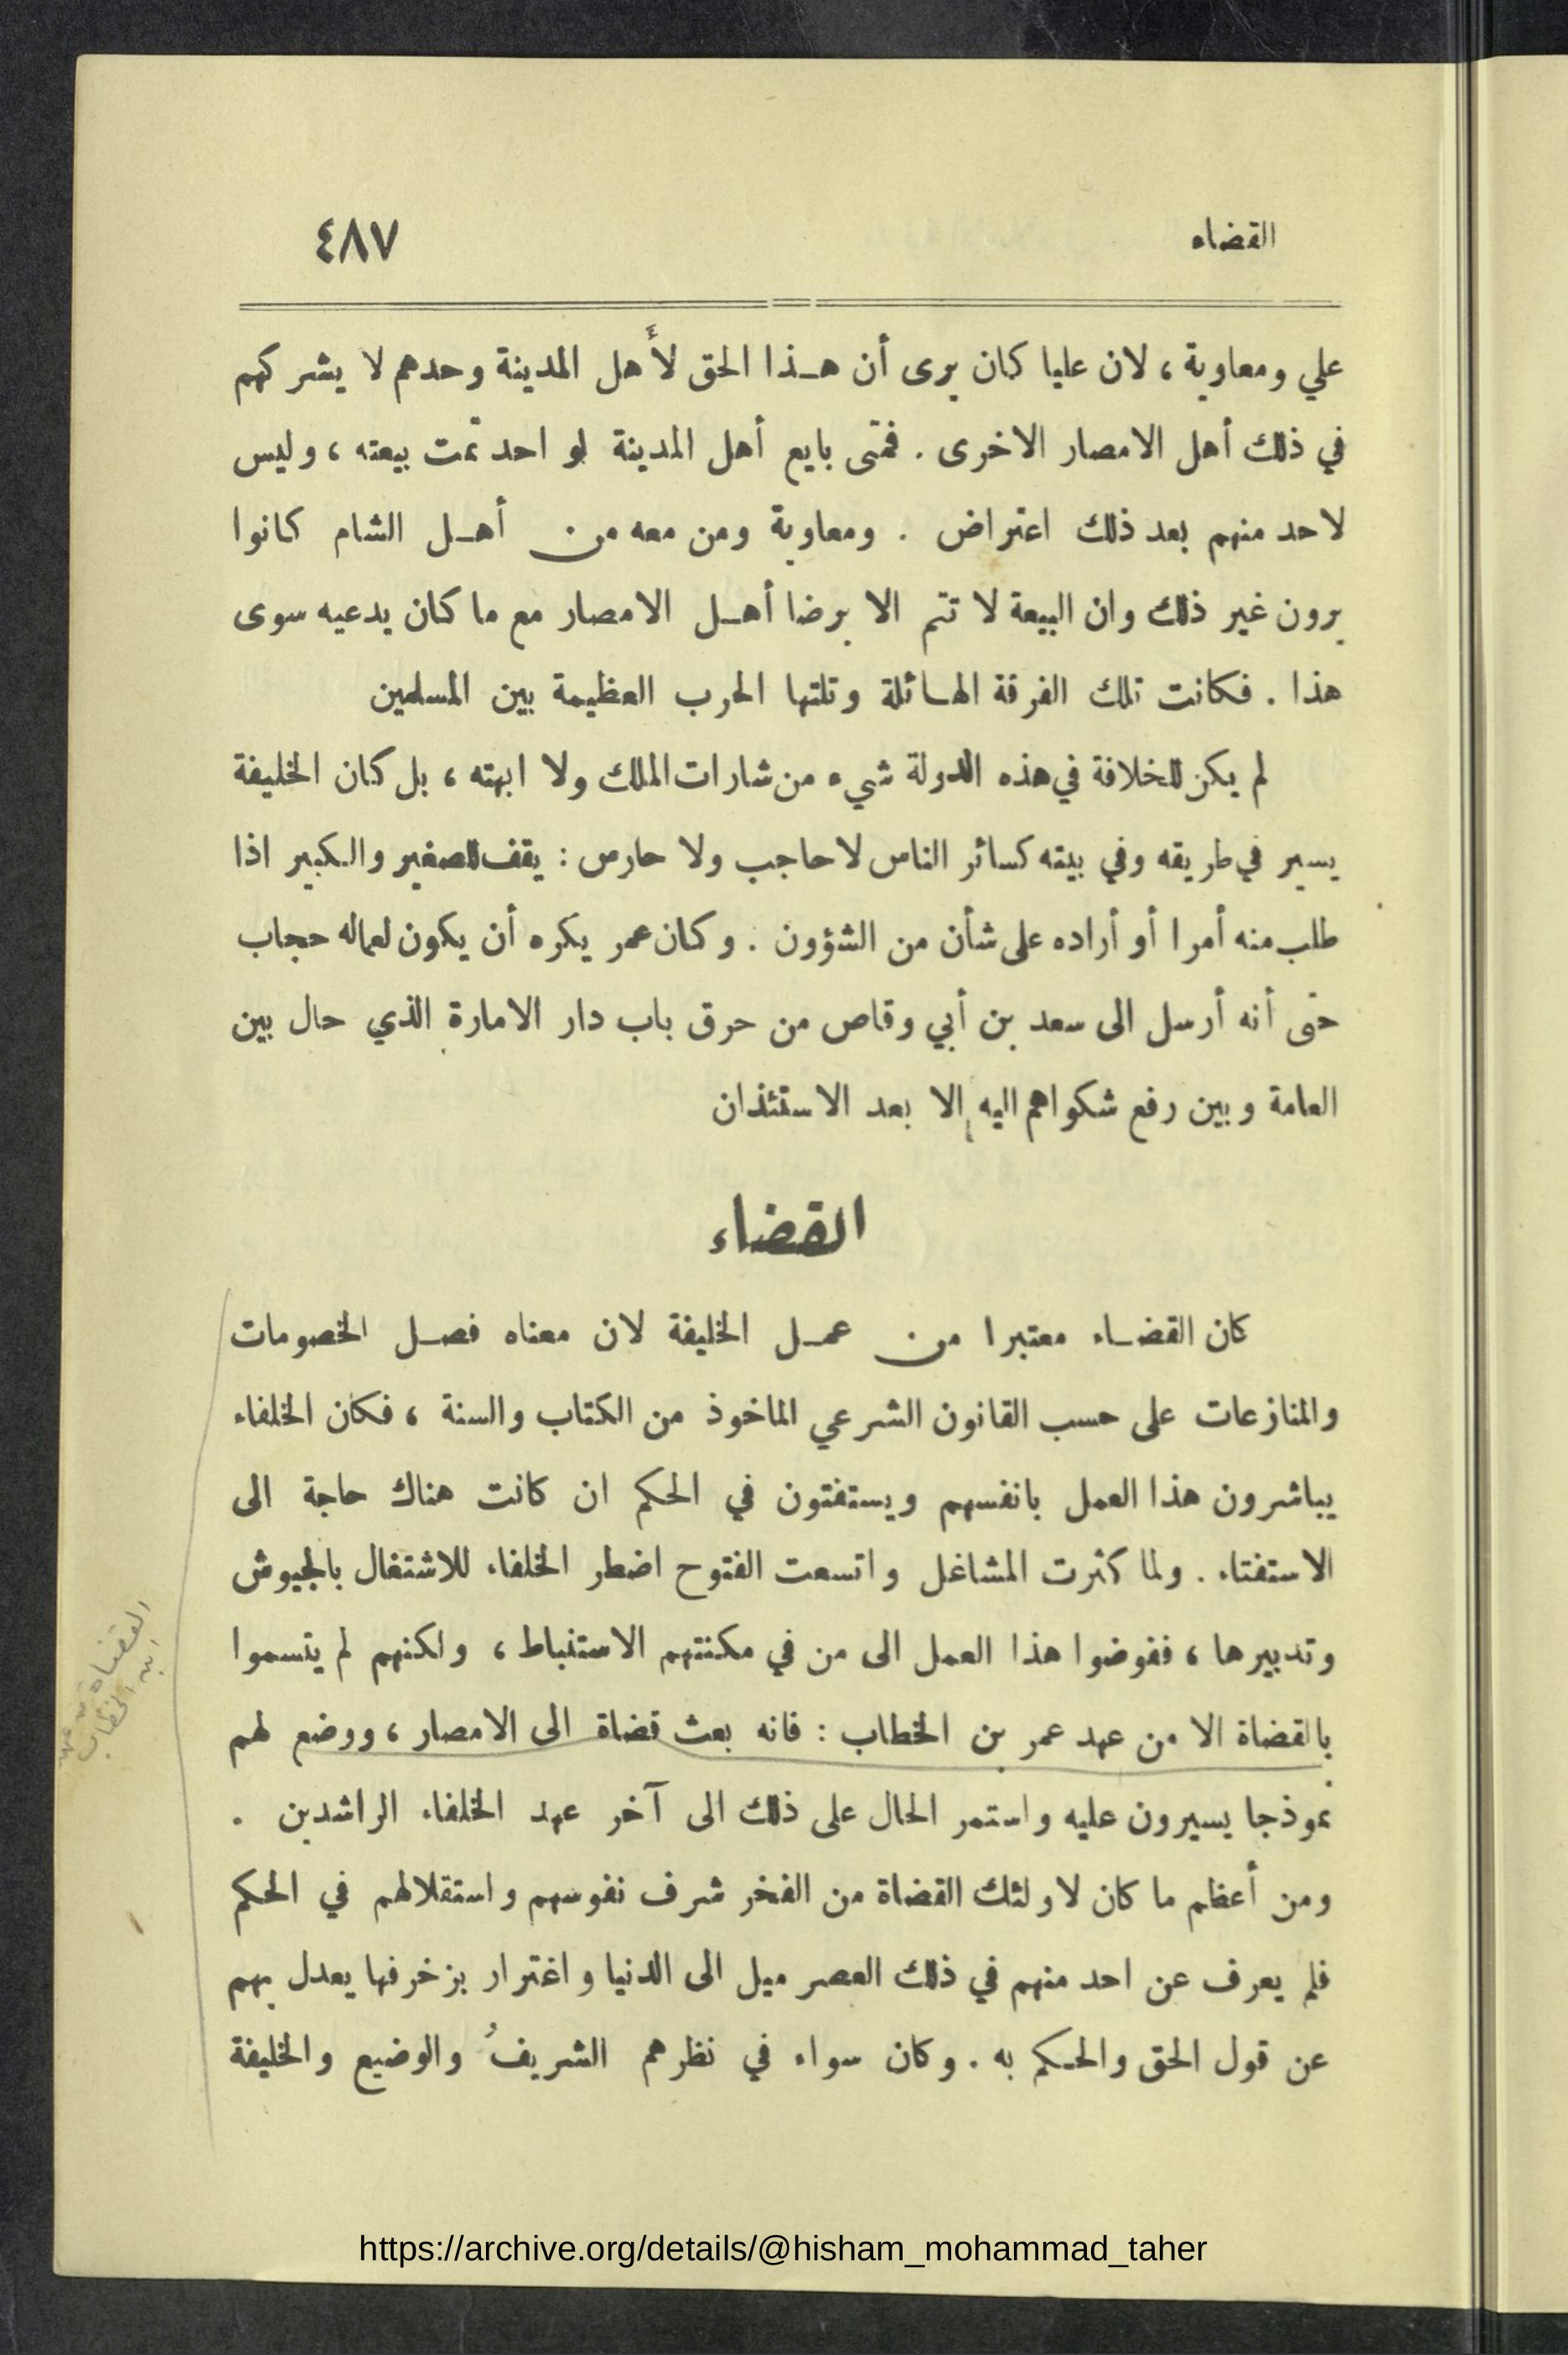 القضاء ٤٨٧
علي ومعاوية ، لان عليا كان يرى أن هذا الحق لأهل المدينة وحدهم لا يشركهم
في ذلك أهل الامصار الاخرى . فمتى بايع أهل المدينة لواحد تمت بيعته ، وليس
لاحد منهم بعد ذلك اعتراض . ومعاوية ومن معه من أهل الشام كانوا
يرون غير ذلك وان البيعة لا تتم الا برضا أهل الامصار مع ما كان يدعيه سوى
هذا . فكانت تلك الفرقة الهائلة وتلتها الحرب العظيمة بين المسلمين
لم يكن للخلافة في هذه الدولة شيء من شارات الملك ولا ابهته ، بل كان الخليفة
يسير في طريقه وفي بيته كسائر الناس لا حاجب ولا حارس : يقف للصغير والكبير اذا
طلب منه أمرا أو أراده على شأن من الشؤون . وكان عمر يكره أن يكون لعماله حجاب
حتى أنه أرسل الى سعد بن أبي وقاص من حرق باب دار الامارة الذي حال بين
العامة وبين رفع شكواهم اليه إلا بعد الاستئذان
القضاء
كان القضاء معتبرا من عمل الخليفة لان معناه فصل الخصومات
والمنازعات على حسب القانون الشرعي الماخوذ من الكتاب والسنة ، فكان الخلفاء
يباشرون هذا العمل بانفسهم ويستفتون في الحكم ان كانت هناك حاجة الى
الاستفتاء . ولما كثرت المشاغل واتسعت الفتوح اضطر الخلفاء للاشتغال بالجيوش
وتدبيرها ، ففوضوا هذا العمل الى من في مكنتهم الاستنباط ، ولكنهم لم يتسموا
بالقضاة الا من عهد عمر بن الخطاب : فانه بعث قضاة الى الامصار ، ووضع لهم
نموذجا يسيرون عليه واستمر الحال على ذلك الى آخر عهد الخلفاء الراشدين .
ومن أعظم ما كان لاولئك القضاة من الفخر شرف نفوسهم واستقلالهم في الحكم
فلم يعرف عن احد منهم في ذلك العصر ميل الى الدنيا واغترار بزخرفها يعدل بهم
عن قول الحق والحكم به . وكان سواء في نظرهم الشريفُ والوضيع والخليفة
القضاة
ابن الخطاب
https://archive.org/details/@hisham_mohammad_taher